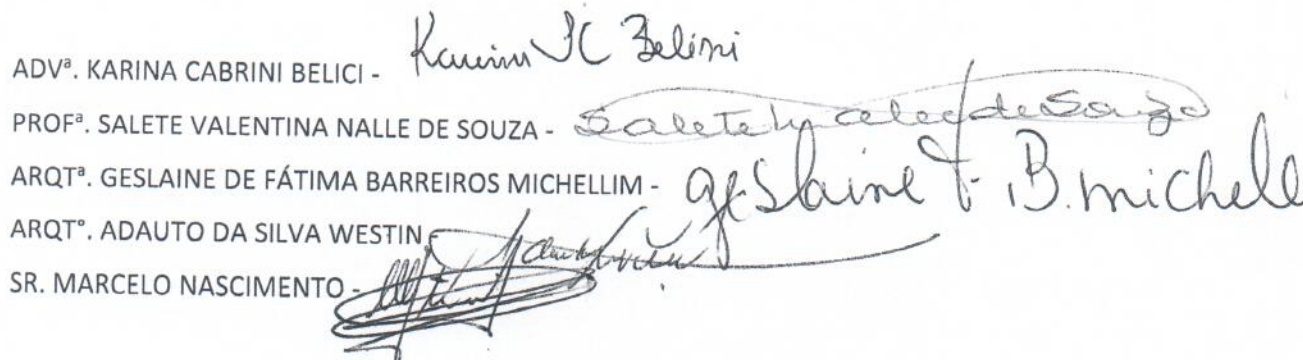 ADVª. KARINA CABRINI BELICI - Karina JC Belini
PROFª. SALETE VALENTINA NALLE DE SOUZA - Salete de Souza
ARQTª. GESLAINE DE FÁTIMA BARREIROS MICHELLIM - Geslaine F. B. Michell
ARQTº. ADAUTO DA SILVA WESTIN
SR. MARCELO NASCIMENTO -